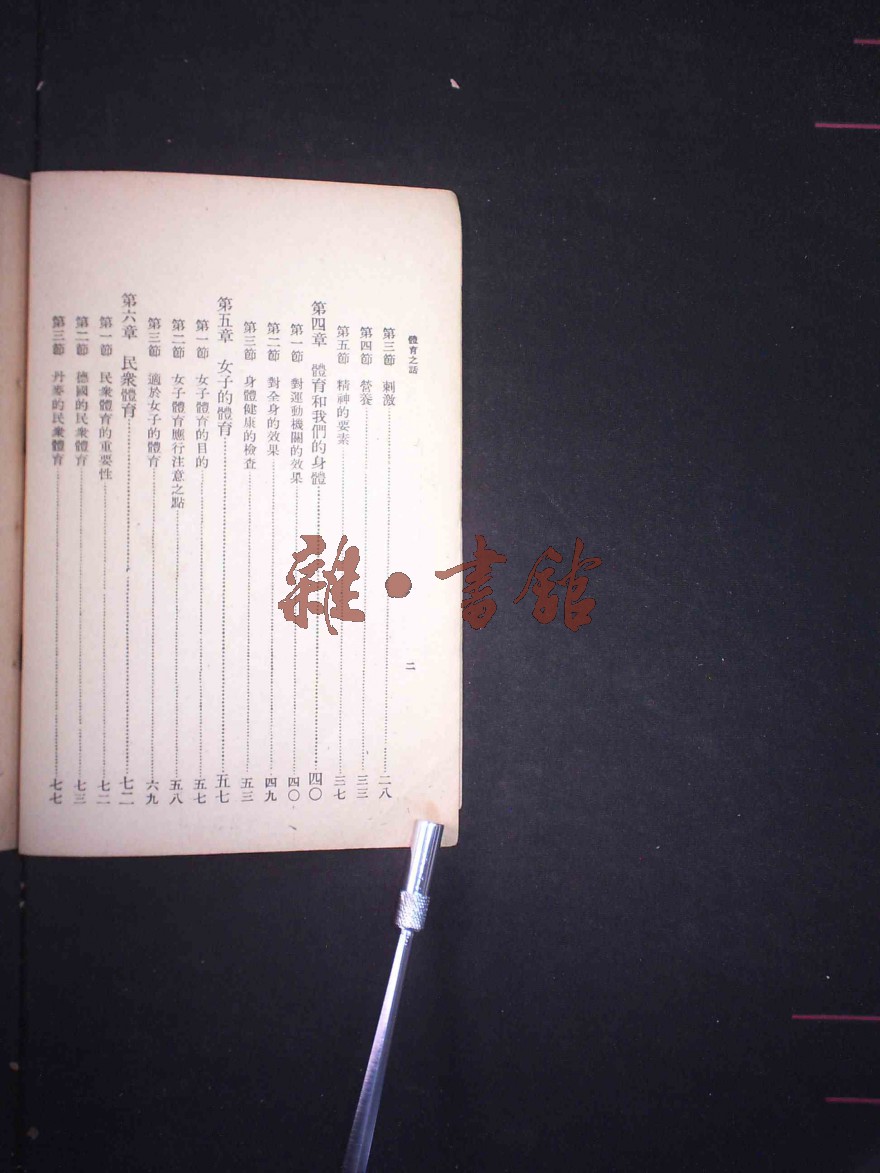 體育之話
二
第三節 刺激 二八
第四節 營養 三三
第五節 精神的要素 三七
第四章 體育和我們的身體 四〇
第一節 對運動機關的效果 四〇
第二節 對全身的效果 四九
第三節 身體健康的檢查 五三
第五章 女子的體育 五七
第一節 女子體育的目的 五七
第二節 女子體育應行注意之點 五八
第三節 適於女子的體育 六九
第六章 民衆體育 七二
第一節 民衆體育的重要性 七二
第二節 德國的民衆體育 七三
第三節 丹麥的民衆體育 七七
雜·書館